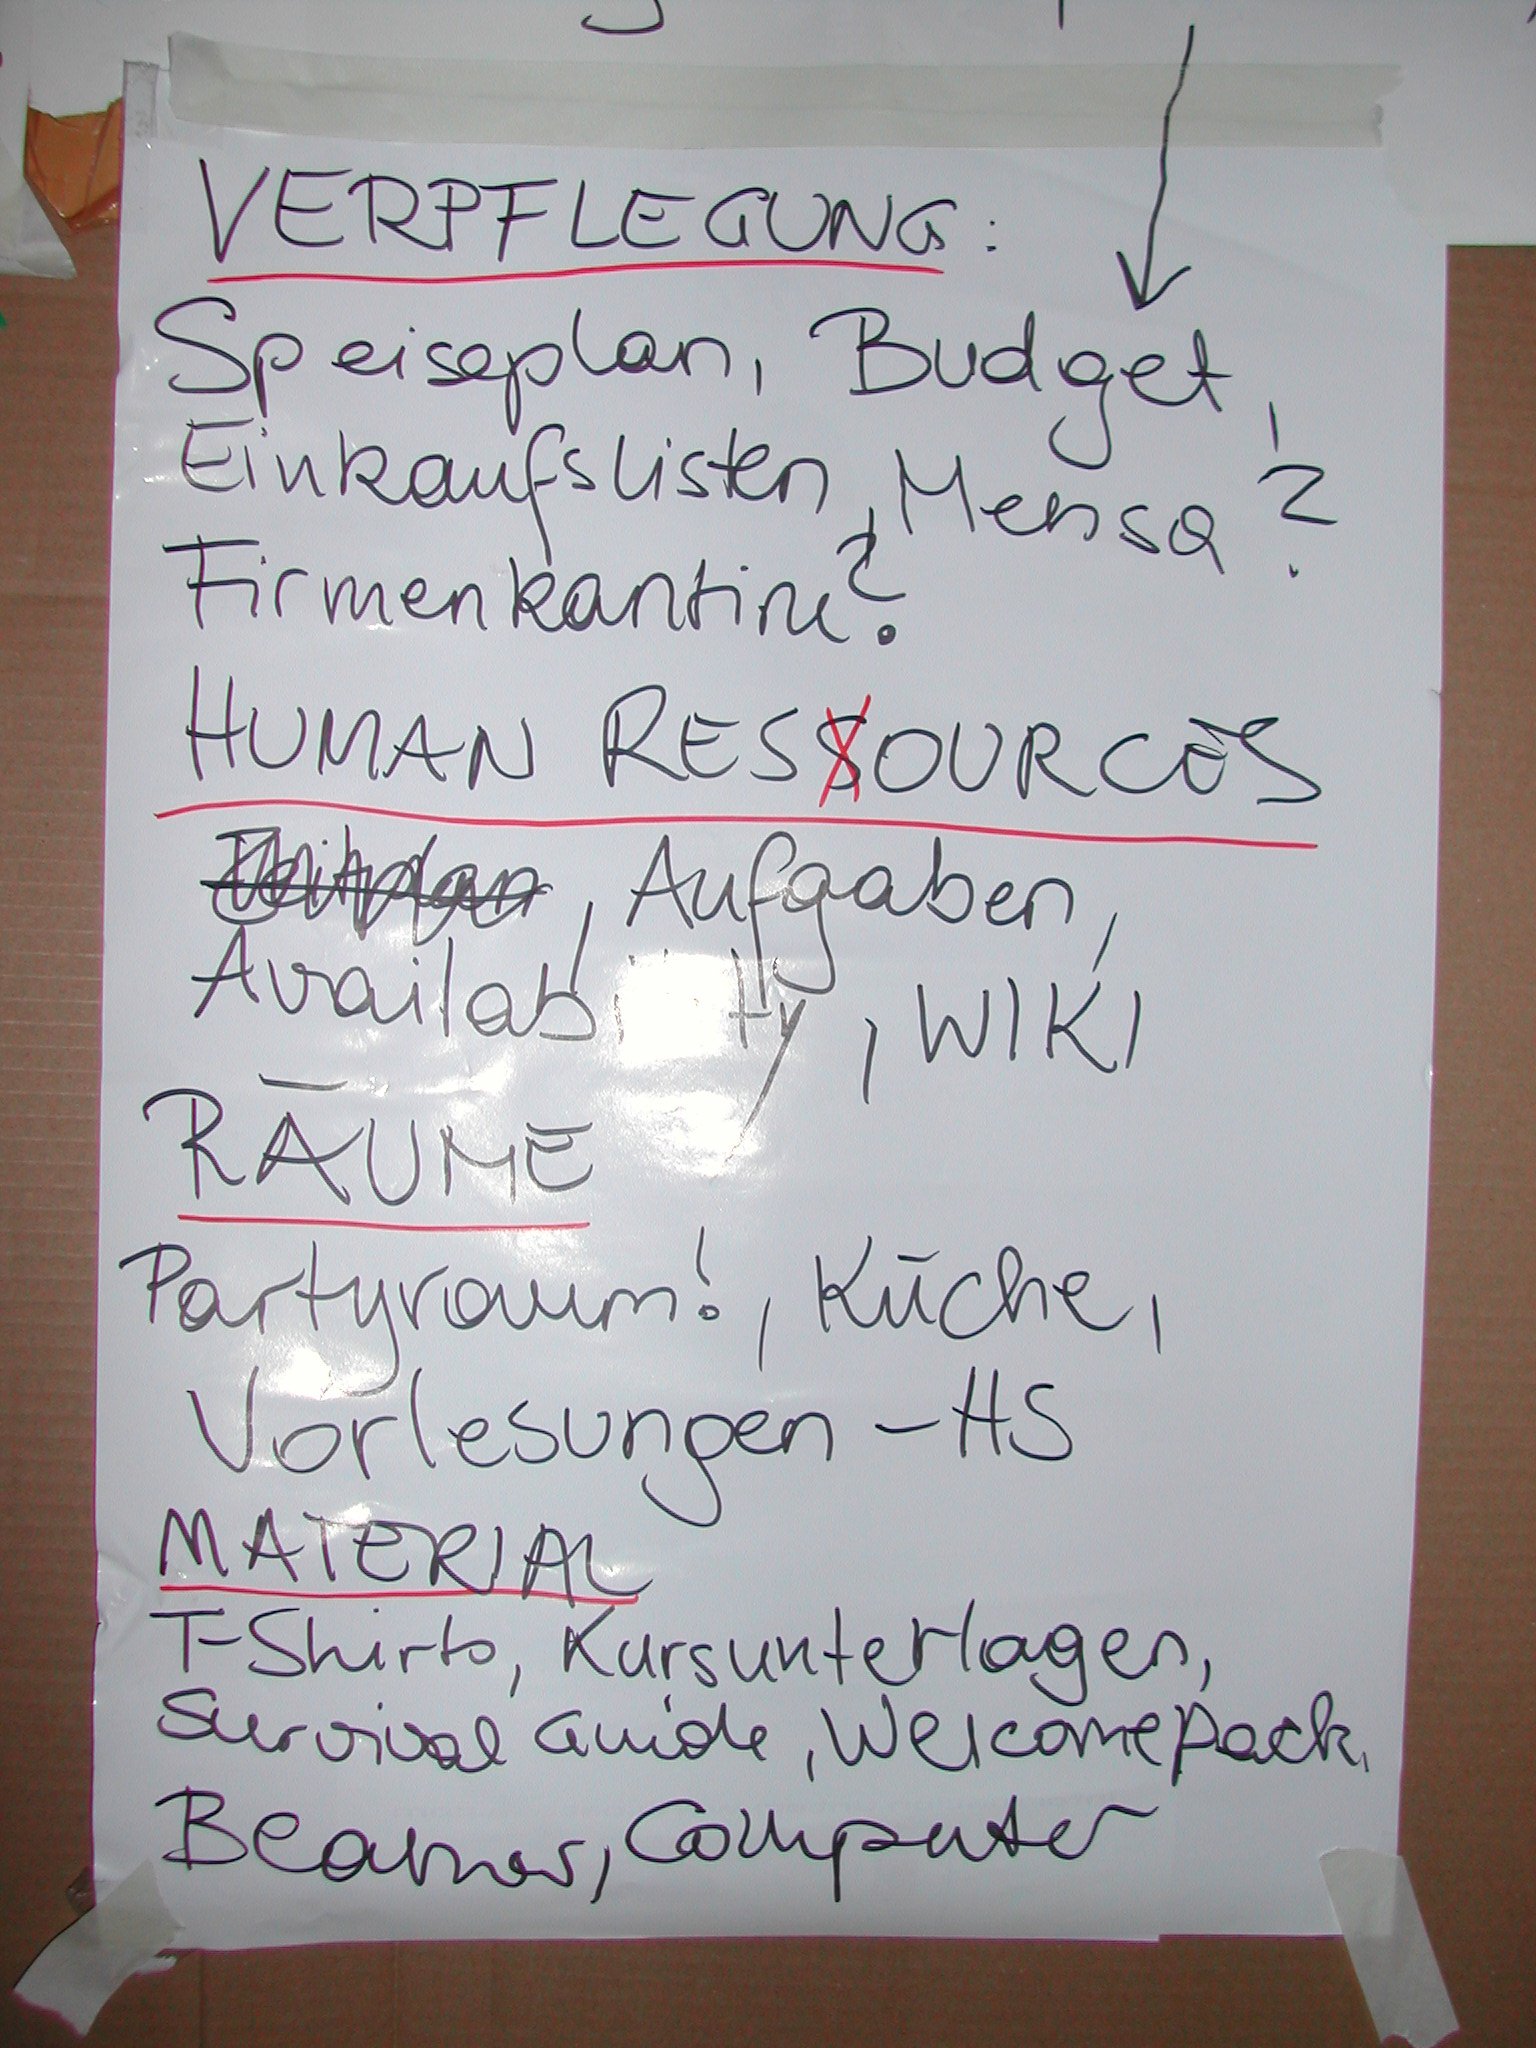 VERPFLEGUNG:
Speiseplan, Budget,
Einkaufslisten, Mensa?
Firmenkantine?
HUMAN RESOURCES
, Aufgaben,
Availability, WIKI
RÄUME
Partyraum!, Küche,
Vorlesungen - HS
MATERIAL
T-Shirts, Kursunterlagen,
Survival Guide, Welcomepack,
Beamer, Computer